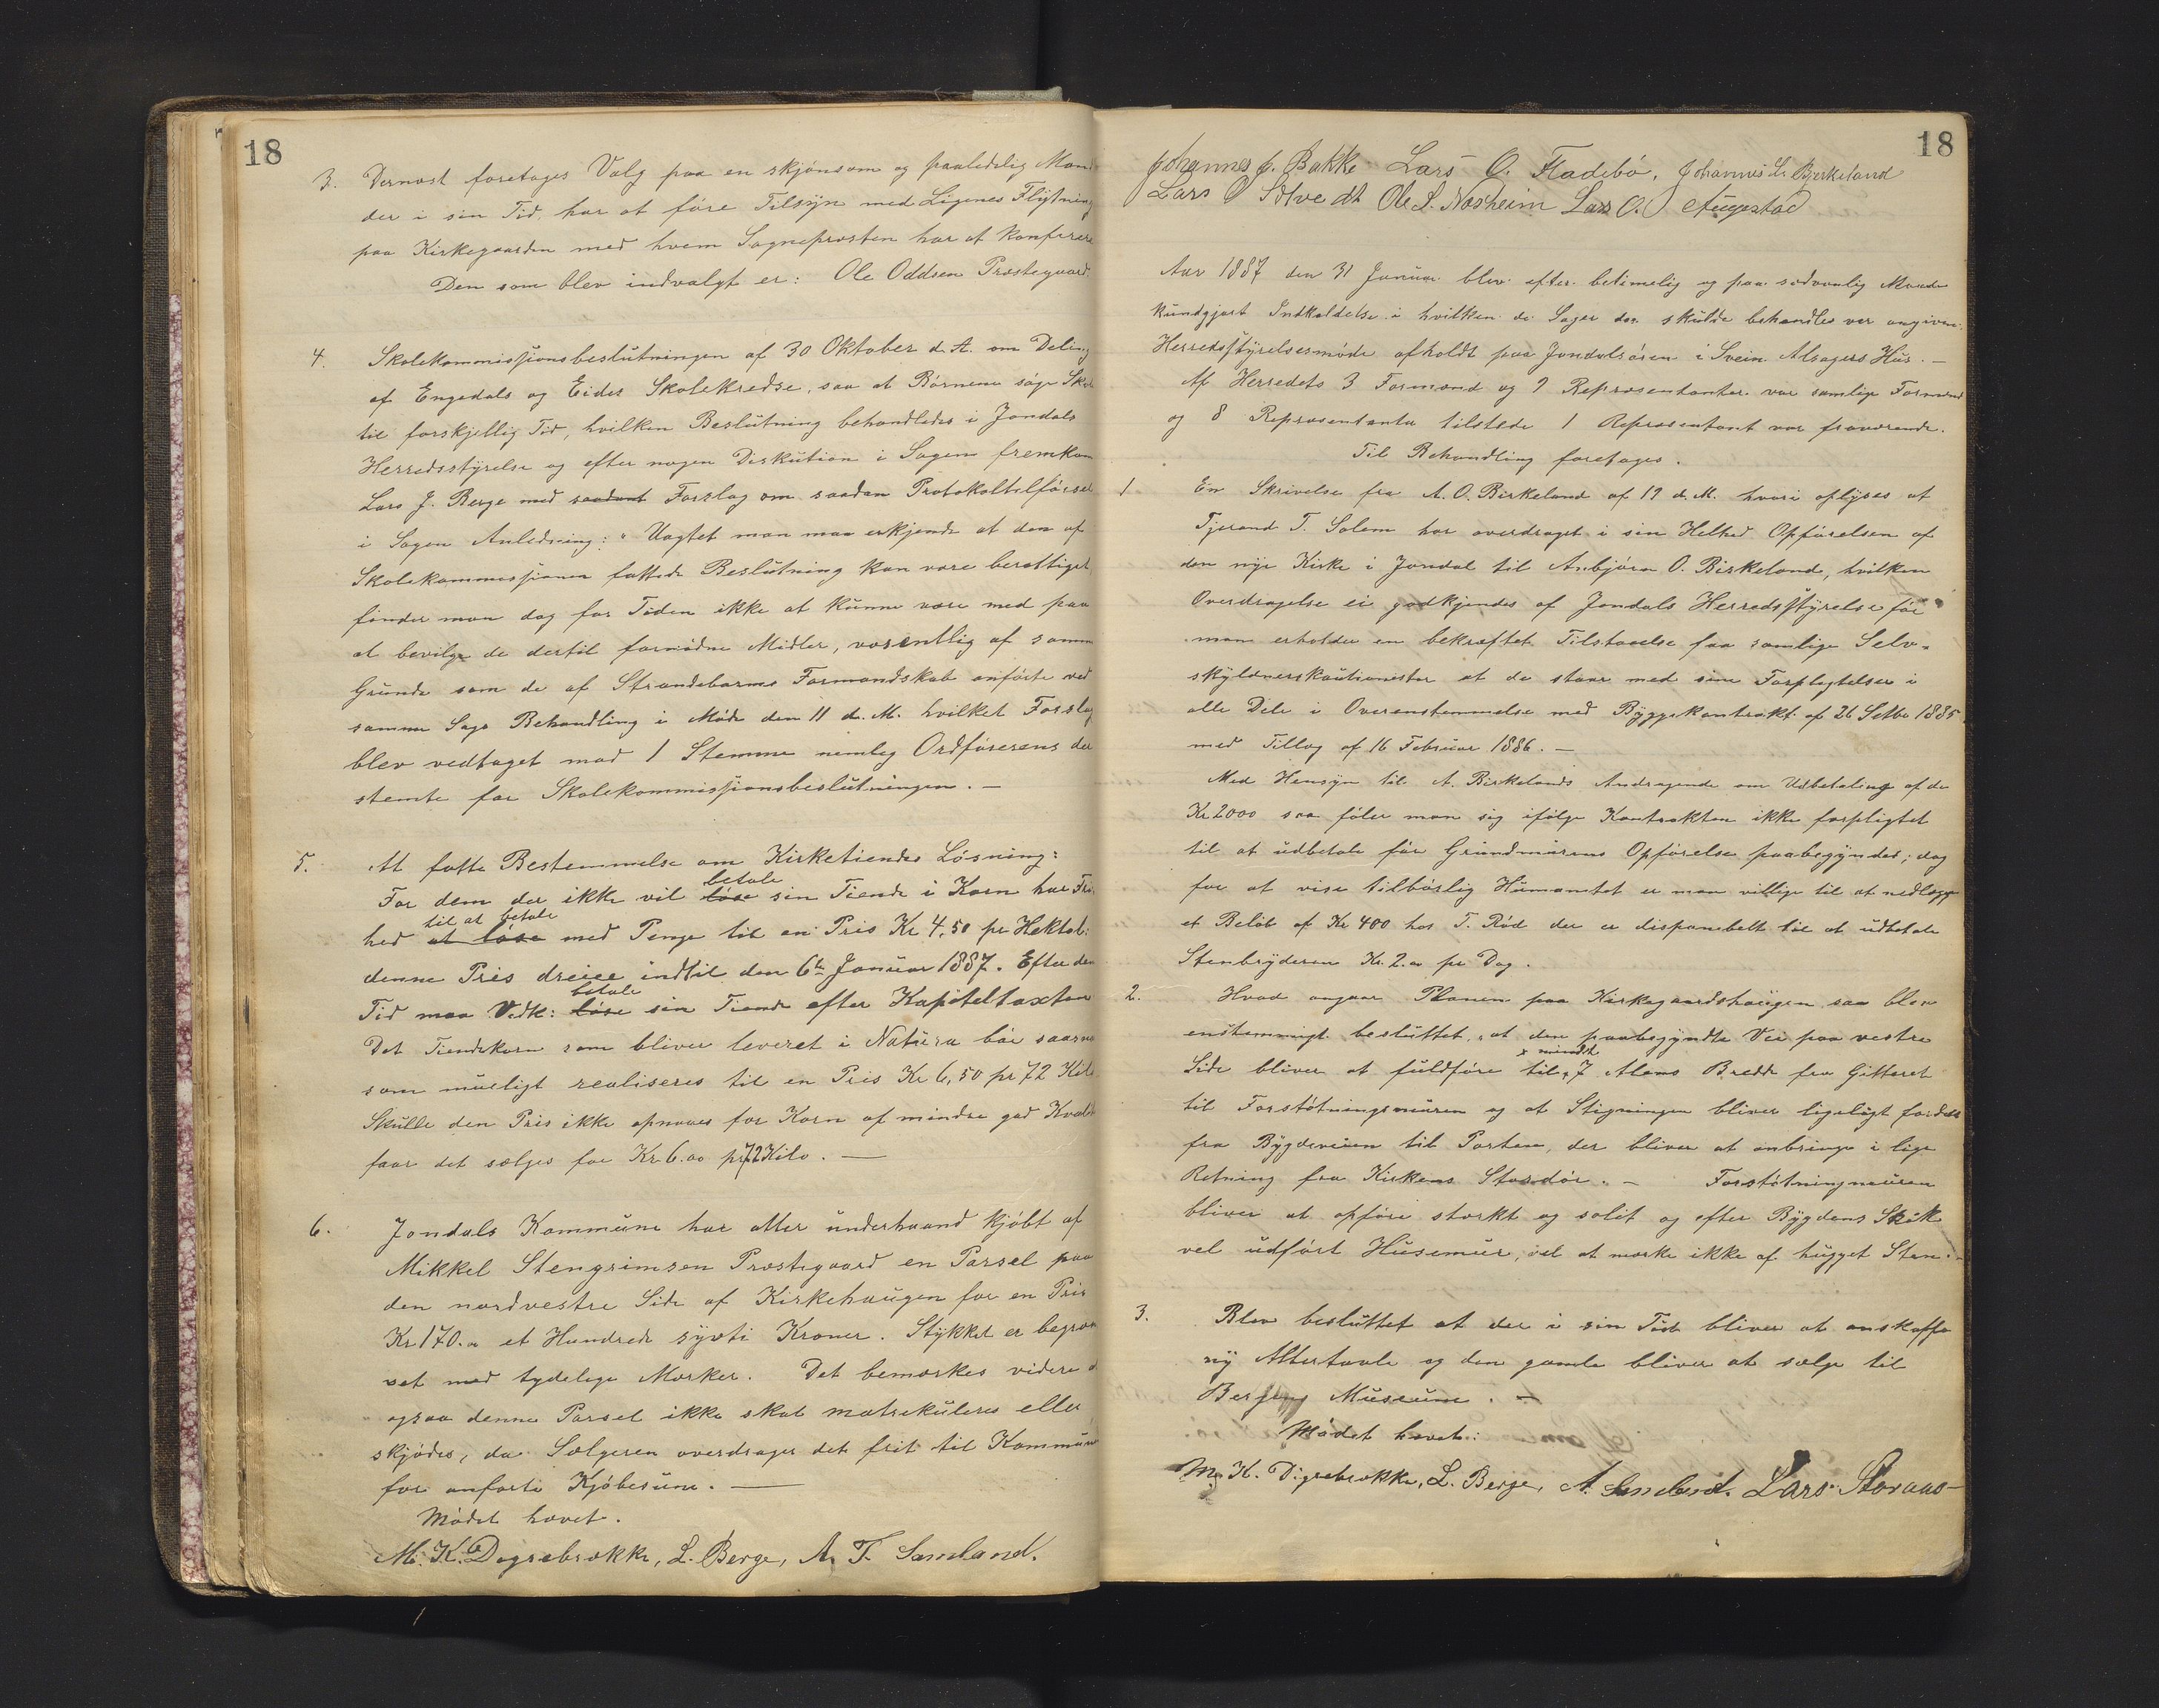 18
3. Dernæst foretoges Valg paa en skjønsom og paalidelig Mand
der i sin Tid har at føre Tilsyn med Ligenes Flytning
paa Kirkegaarden med hvem Sognepresten har at konferere
Den som blev indvalgt er: Ole Oddsen Præstegaard.
4. Skolekommissjonsbeslutningen af 30 Oktober d. A. om Deling
af Engedals og Eides Skolekredse, saa at Børnene søge Skole
til forskjellig Tid, hvilken Beslutning behandledes i Jondals
Herredsstyrelse og efter nogen Diskution i Sagen fremkom
Lars J. Berge med saadant Forslag om saadan Protokoltilførsel
i Sagen Anledning: "Uagtet man maa erkjende at den af
Skolekommissjonen fattede Beslutning kan være berettiget
finder man dog for Tiden ikke at kunne være med paa
at bevilge de dertil fornødne Midler, væsentlig af samme
Grunde som de af Strandebarms Formandskab anførte ved
samme Sags Behandling i Møde den 11 d. M. hvilket Forslag
blev vedtaget mod 1 Stemme nemlig Ordførerens der
stemte for Skolekommissjonsbeslutningen. —
5. At fatte Bestemmelse om Kirketiendes Løsning:
betale
For dem der ikke vil løse sin Tiende i Korn har Fri-
til at betale
hed at løse med Penge til en Pris Kr 4,50 pr Hektol:
denne Pris dreier indtil den 6te Januar 1887. Efter den
betale
Tid maa Vedk: løse sin Tiende efter Kapiteltaxten
Det Tiendekorn som bliver leveret i Natura bør saasnart
som mueligt realiseres til en Pris Kr 6,50 pr 72 Kilo
Skulle den Pris ikke opnaaes for Korn af mindre god Kvalit
faar det sælges for Kr 6.00 pr 72 Kilo. —
6. Jondals Kommune har atter underhaand kjøbt af
Mikkel Stengrimsen Præstegaard en Parsel paa
den nordvestre Side af Kirkehaugen for en Pris
Kr 170.00 et Hundrede syvti Kroner. Stykket er begræn
set med tydelige Mærker. Det bemærkes videre at
ogsaa denne Parsel ikke skal matrikuleres eller
skjødes, da Sælgeren overdrager det frit til Kommunen
for anførte Kjøbesum. —
Mødet hævet.
M. K. Digrebrække, L. Berge, A. T. Samland.
18
Johannes J. Bakke Lars O. Fladebø, Johannes L. Bjerkeland
Lars O Selvedt Ole S. Næsheim Lars O. Augestad
Aar 1887 den 31 Januar blev efter betimelig og paa sædvanlig Maade
kundgjort Indkaldelse i hvilken de Sager der skulde behandles var angivne.
Herredsstyrelsesmøde afholdt paa Jondalsøren i Svein Alsagers Hus. —
Af Herredets 3 Formænd og 9 Repræsentanter var samlige Formænd
og 8 Repræsentanter tilstede 1 Repræsentant var fraværende.
Til Behandling foretoges.
1. En Skrivelse fra A. O. Birkeland af 19 d. M. hvori oplyses at
Tjerand T. Solem har overdraget i sin Helhed Opførelsen af
den nye Kirke i Jondal til Asbjørn O. Birkeland, hvilken
Overdragelse ei godkjendes af Jondals Herredsstyrelse før
man erholder en bekræftet Tilstaaelse fra samlige Selv-
skyldnerskautionister at de staar med sine Forpligtelser i
alle Dele i Overenstemmelse med Byggekontrakt af 26 Setbr 1885
med Tillæg af 16 Februar 1886. —
Med Hensyn til A. Birkelands Andragende om Udbetaling af de
Kr 2000 saa føler man sig ifølge Kontrakten ikke forpligtet
til at udbetale før Grundmurens Opførelse paabegyndes; dog
for at vise tilbørlig Humanitet er man villige til at nedlægge
et Beløb af Kr 400 hos T. Rød der er disponibelt til at udbetale
Stenbryderen Kr. 2.00 pr Dag.
2. Hvad angaar Planen paa Kirkegaardshaugen saa blev
enstemmigt besluttet, at den paabegyndte Vei paa vestre
x mindst
Side bliver at fuldføre til x 7 Alens Bredde fra Gitteret
til Forstøtningsmuren og at Stigningen bliver ligeligt fordelt
fra Bygdeveien til Porten, der bliver at anbringe i lige
Retning fra Kirkens Stordør. — Forstøtningmuren
bliver at opføre stærkt og solit og efter Bygdens Skik
vel udført Husemur, vel at mærke ikke af hugget Sten. —
3. Blev besluttet at der i sin Tid bliver at anskaffe
ny Altertavle og den gamle bliver at sælge til
Bergens Museum. —
Mødet hævet:
M. K. Digrebrække, L. Berge, A. Samland. Lars Storaas